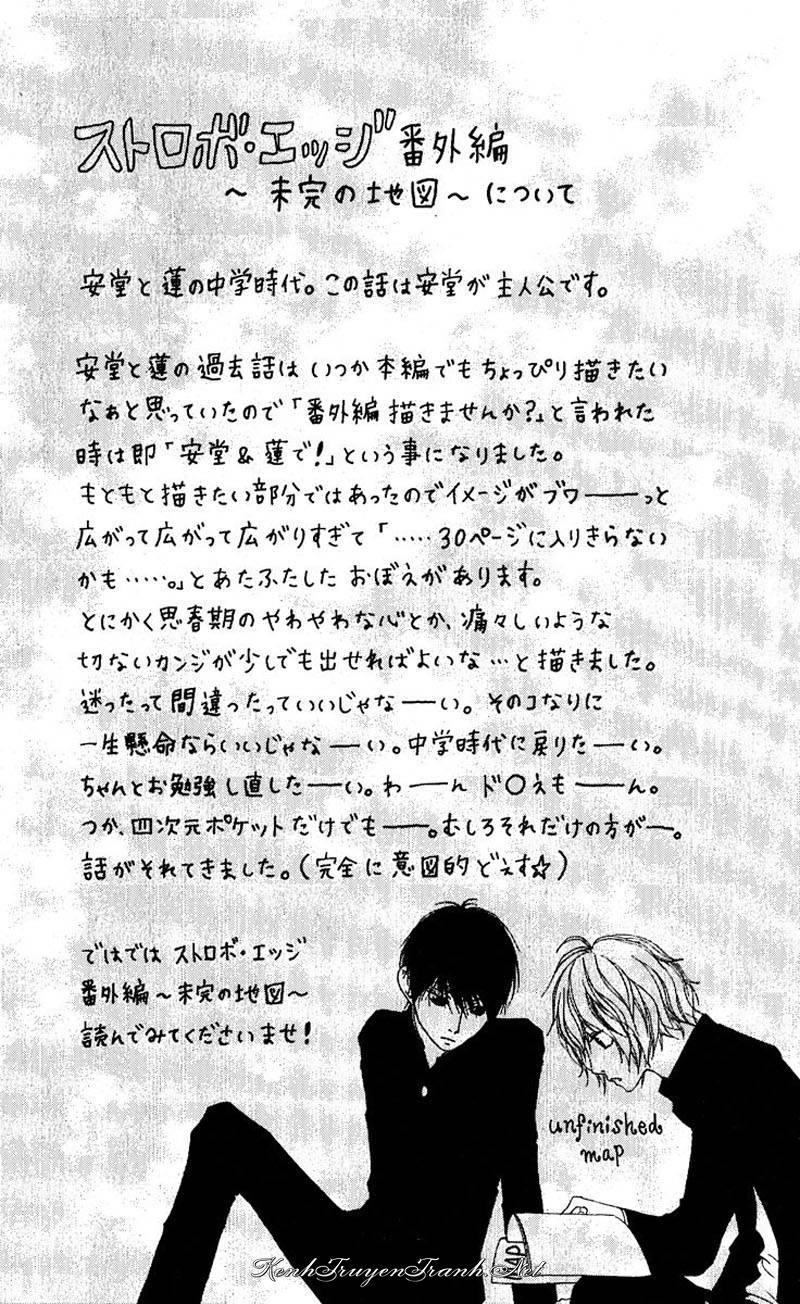 ストロボ・エッジ番外編
～未完の地図～について
安堂と蓮の中学時代。この話は安堂が主人公です。
安堂と蓮の過去話はいつか本編でもちょっぴり描きたい
なぁと思っていたので「番外編描きませんか?」と言われた
時は即「安堂&蓮で!」という事になりました。
もともと描きたい部分ではあったのでイメージがブワーーっと
広がって広がって広がりすぎて「……30ページに入りきらない
かも……。」とあたふたしたおぼえがあります。
とにかく思春期のやわやわな心とか、痛々しいような
切ないカンジが少しでも出せればよいな…と描きました。
迷ったって間違ったっていいじゃなーい。そのコなりに
一生懸命ならいいじゃなーい。中学時代に戻りたーい。
ちゃんとお勉強し直したーい。わーん ド〇えもーん。
つか、四次元ポケットだけでもー。むしろそれだけの方がー。
話がそれてきました。(完全に意図的どえす☆)
ではでは ストロボ・エッジ
番外編～未完の地図～
読んでみてくださいませ!
unfinished
map
MAP
KenhTruyenTranh.Net